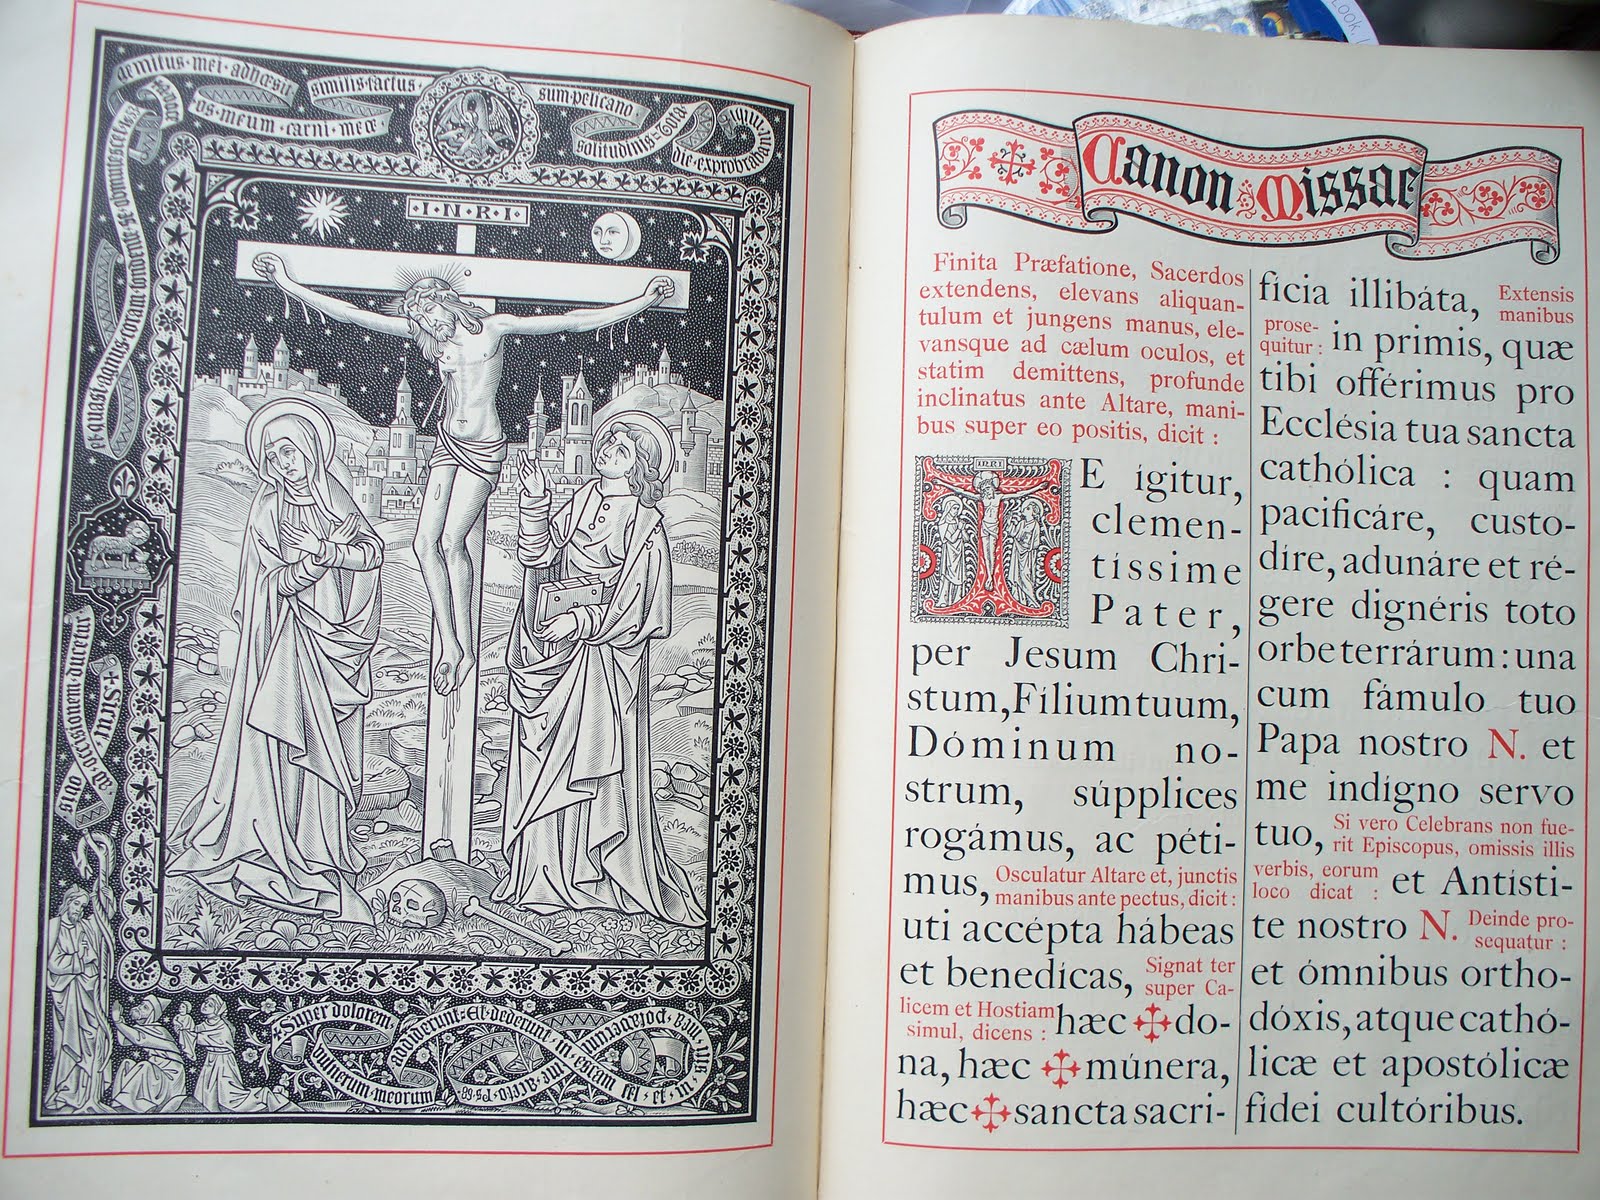 gemitus · mei · adhæsit
os · meum · carni · meæ
similis · factus ·
sum · pelicano
solitudinis · tota
die · exprobrabant
mihi
+ Sicut
ovis · ad · occisionem · ducetur
et · quasi · agnus · coram · tondente · se · obmutescet
· I · N · R · I ·
Super dolorem
vulnerum · meorum
addiderunt · Et · dederunt · in · escam
Look, I
Canon Missae
Finita Præfatione, Sacerdos
extendens, elevans aliquan-
tulum et jungens manus, ele-
vansque ad cælum oculos, et
statim demittens, profunde
inclinatus ante Altare, mani-
bus super eo positis, dicit :
INRI
TE ígitur,
clemen-
tíssime
Pater,
per Jesum Chri-
stum, Fílium tuum,
Dóminum no-
strum, súpplices
rogámus, ac péti-
mus, Osculatur Altare et, junctis
manibus ante pectus, dicit :
uti accépta hábeas
et benedícas, Signat ter
super Ca-
licem et Hostiam
simul, dicens : hæc ✠ do-
na, hæc ✠ múnera,
hæc ✠ sancta sacri-
ficia illibáta, Extensis
manibus
prose-
quitur : in primis, quæ
tibi offérimus pro
Ecclésia tua sancta
cathólica : quam
pacificáre, custo-
díre, adunáre et ré-
gere dignéris toto
orbe terrárum : una
cum fámulo tuo
Papa nostro N. et
me indígno servo
tuo, Si vero Celebrans non fue-
rit Episcopus, omissis illis
verbis, eorum
loco dicat : et Antísti-
te nostro N. Deinde pro-
sequatur :
et ómnibus ortho-
dóxis, atque cathó-
licæ et apostólicæ
fídei cultóribus.